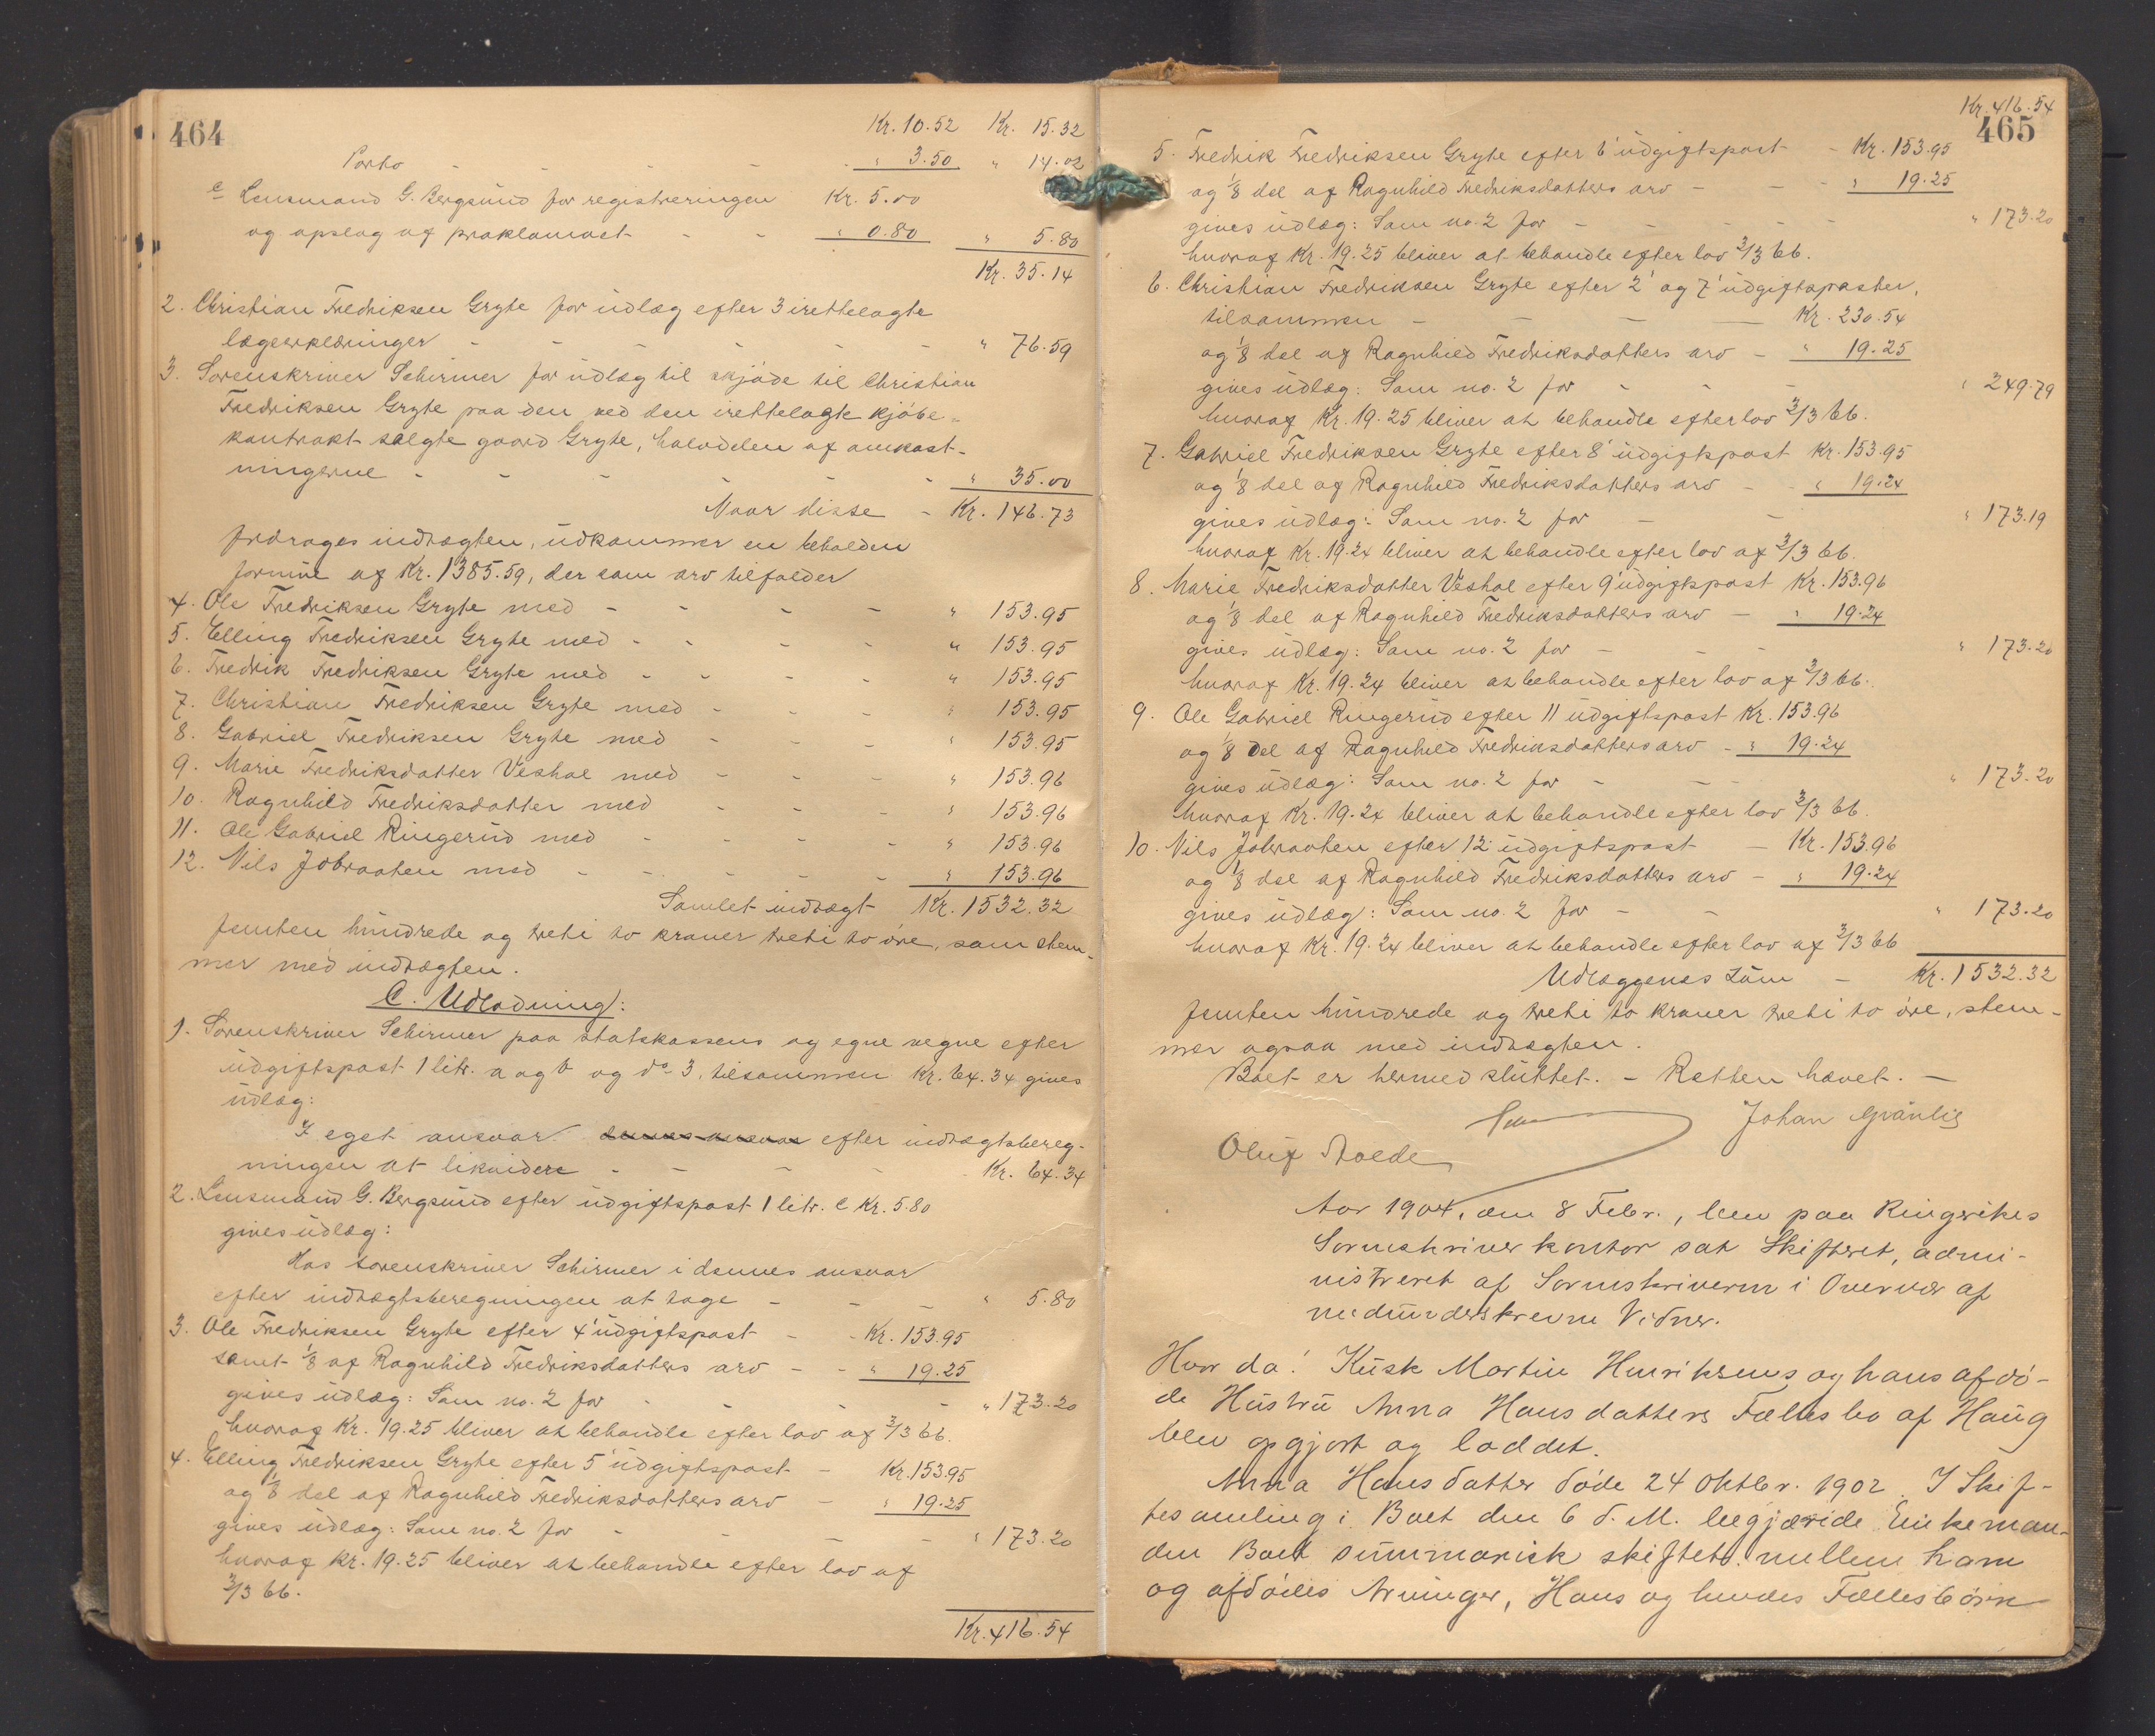 464
Kr. 10.52 Kr. 15.32
Porto - - - - " 3.50 " 14.02
c Lensmand G. Bergsund for registreringen Kr. 5.00
og opslag af proklamaet - - " 0.80 " 5.80
Kr. 35.14
2. Christian Fredriksen Gryte for udlæg efter 3 irettelagte
lægeerklæringer - - - - - - " 76.59
3. Sorenskriver Schirmer for udlæg til skjøde til Christian
Fredriksen Gryte paa den ved den irettelagte kjøbe-
kontrakt solgte gaard Gryte, halvdelen af omkost-
ningerne - - - - - " 35.00
Naar disse - Kr. 146.73
fradrages indtægten, udkommer en beholden
formue af Kr. 1385.59, der som arv tilfalder
4. Ole Fredriksen Gryte med - - - - " 153.95
5. Elling Fredriksen Gryte med - - - - " 153.95
6. Fredrik Fredriksen Gryte med - - - - " 153.95
7. Christian Fredriksen Gryte med - - - " 153.95
8. Gabriel Fredriksen Gryte med - - - " 153.95
9. Marie Fredriksdatter Veshal med - - - " 153.96
10. Ragnhild Fredriksdatter med - - - " 153.96
11. Ole Gabriel Ringerud med - - - - " 153.96
12. Nils Jobraaten med - - - - - " 153.96
Samlet indtægt Kr. 1532.32
femten hundrede og treti to kroner treti to øre, som stem-
mer med indtægten.
C. Udlodning:
1. Sorenskriver Schirmer paa statskassens og egne vegne efter
udgiftspost 1 litr. a og b og do 3, tilsammen Kr. 64.34 gives
udlæg:
I eget ansvar dennes ansvar efter indtægtsbereg-
ningen at likvidere - - - - Kr. 64.34
2. Lensmand G. Bergsund efter udgiftspost 1 litr. c Kr. 5.80
gives udlæg:
Hos sorenskriver Schirmer i dennes ansvar
efter indtægtsberegningen at tage - - - " 5.80
3. Ole Fredriksen Gryte efter 4' udgiftspost - - Kr. 153.95
samt 1/8 af Ragnhild Fredriksdatters arv - - " 19.25
gives udlæg: Som no. 2 for - - - - " 173.20
hvoraf Kr. 19.25 bliver at behandle efter lov af 3/3 66.
4. Elling Fredriksen Gryte efter 5' udgiftspost - Kr. 153.95
og 1/8 del af Ragnhild Fredriksdatters arv - " 19.25
gives udlæg: Som no. 2 for - - - - " 173.20
hvoraf Kr. 19.25 bliver at behandle efter lov af
3/3 66.
Kr. 416.54
Kr. 416.54
465
5. Fredrik Fredriksen Gryte efter 6' udgiftspost - Kr. 153.95
og 1/8 del af Ragnhild Fredriksdatters arv - - - " 19.25
gives udlæg: Som no. 2 for - - - - " 173.20
hvoraf Kr. 19.25 bliver at behandle efter lov 3/3 66.
6. Christian Fredriksen Gryte efter 2' og 7' udgiftsposter,
tilsammen - - - - Kr. 230.54
og 1/8 del af Ragnhild Fredriksdatters arv - " 19.25
gives udlæg: Som no. 2 for - - - " 249.79
hvoraf Kr. 19.25 bliver at behandle efter lov 3/3 66.
7. Gabriel Fredriksen Gryte efter 8' udgiftspost Kr. 153.95
og 1/8 del af Ragnhild Fredriksdatters arv - - " 19.24
gives udlæg: Som no. 2 for - - " 173.19
hvoraf Kr. 19.24 bliver at behandle efter lov af 3/3 66.
8. Marie Fredriksdatter Veshal efter 9' udgiftspost Kr. 153.96
og 1/8 del af Ragnhild Fredriksdatters arv - " 19.24
gives udlæg: Som no. 2 for - - - " 173.20
hvoraf Kr. 19.24 bliver at behandle efter lov af 3/3 66.
9. Ole Gabriel Ringerud efter 11 udgiftspost Kr. 153.96
og 1/8 del af Ragnhild Fredriksdatters arv - " 19.24
gives udlæg: Som no. 2 for - - - " 173.20
hvoraf Kr. 19.24 bliver at behandle efter lov 3/3 66.
10. Nils Jobraaten efter 12' udgiftspost - Kr. 153.96
og 1/8 del af Ragnhild Fredriksdatters arv - " 19.24
gives udlæg: Som no. 2 for - - " 173.20
hvoraf Kr. 19.24 bliver at behandle efter lov af 3/3 66
Udlæggenes sum - Kr. 1532.32
femten hundrede og treti to kroner treti to øre, stem-
mer ogsaa med indtægten.
Boet er hermed sluttet. - Retten hævet. -
Johan Granlie
Oluf Rolde
Aar 1904, den 8 Febr., blev paa Ringerikes
Sorenskriverkontor sat Skifteret, admi-
nistreret af Sorenskriveren i Overvær af
nedunderskrevne Vidner.
Hvor da: Kusk Martin Henriksens og hans afdø-
de Hustru Anna Hansdatters Fællesbo af Haug
blev opgjort og loddet.
Anna Hansdatter døde 24 Oktbr. 1902. I Skif-
tesamling i Boet den 6 d. M. begjærede Enkeman-
den Boet summarisk skiftet mellem ham
og afdødes Arvinger, Hans og hendes Fællesbørn